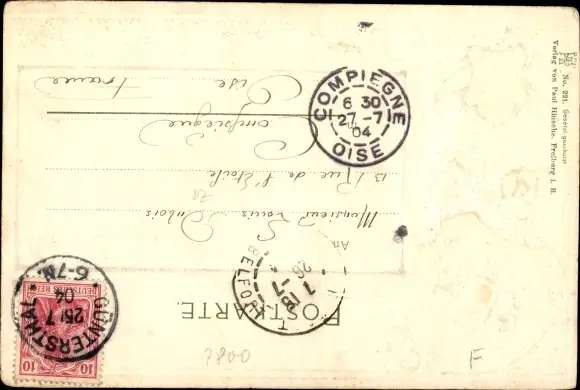 POSTKARTE.
An
Monsieur Louis Dubois
13 Rue de l'Etoile
Compiègne
Oise
France
COMPIEGNE
6 30
27 -7
04
OISE
BELFORT
26
GÜNTERSTHAL
25/7
04
6-7N.
DEUTSCHES REICH
10 10
No. 221. Gesetzl. geschützt
Verlag von Paul Hinsche, Freiburg i. B.
F